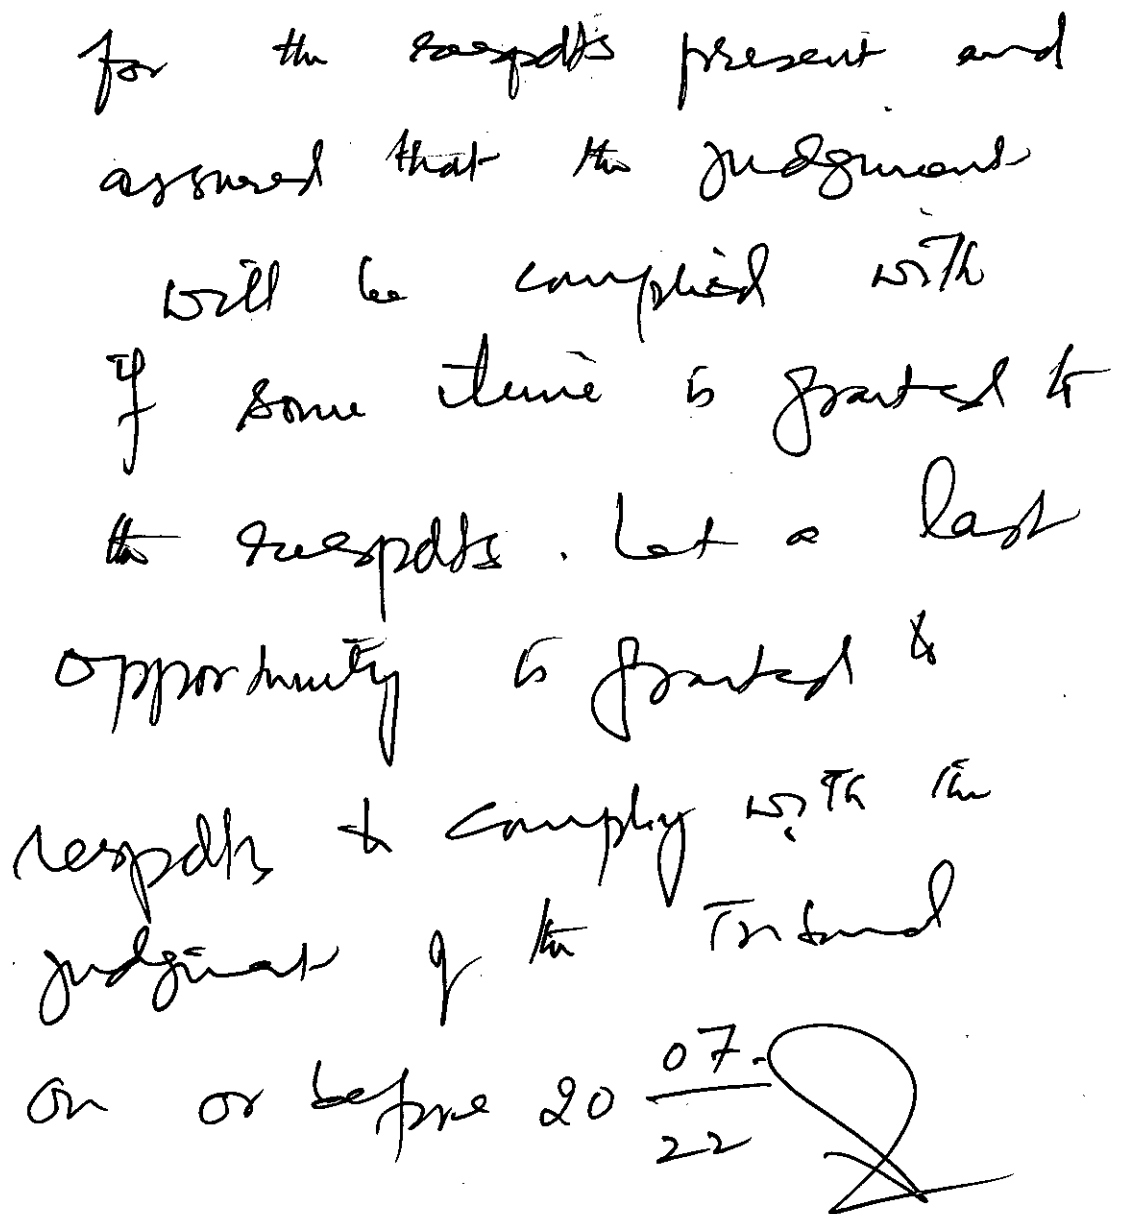 for the respdts present and
assured that the judgment
will be complied with
If some time is granted to
the respdts. Let a last
opportunity is granted to
respdts to comply with the
judgment of the Tribunal
on or before 20 07/22